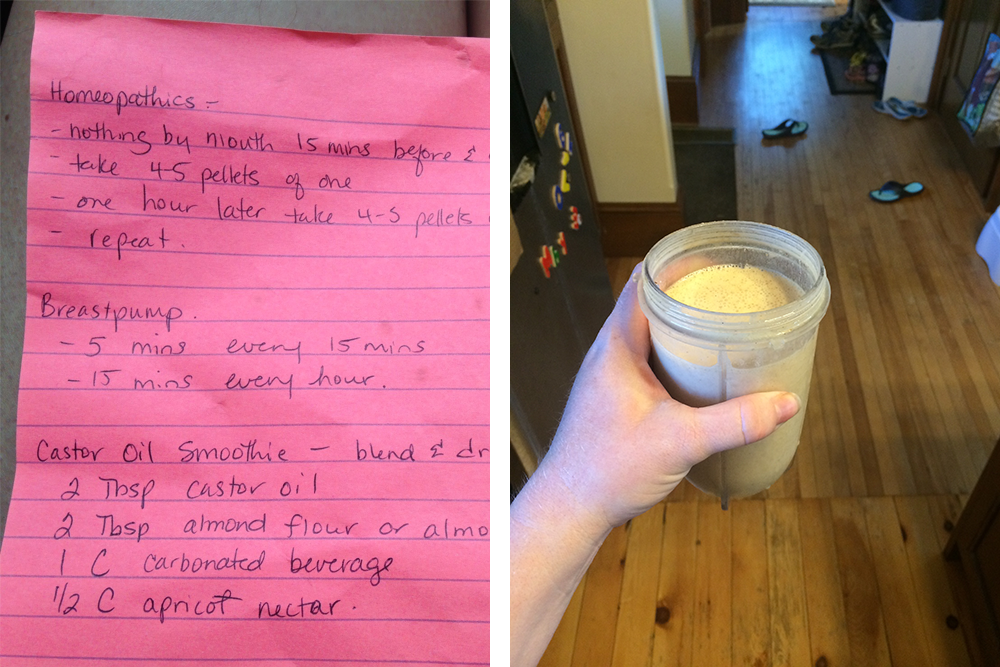 Homeopathics -
- nothing by mouth 15 mins before &
- take 4-5 pellets of one
- one hour later take 4-5 pellets
- repeat.
Breastpump.
- 5 mins every 15 mins
- 15 mins every hour.
Castor Oil Smoothie - blend & dr
2 Tbsp castor oil
2 Tbsp almond flour or almo
1 C carbonated beverage
1/2 C apricot nectar.